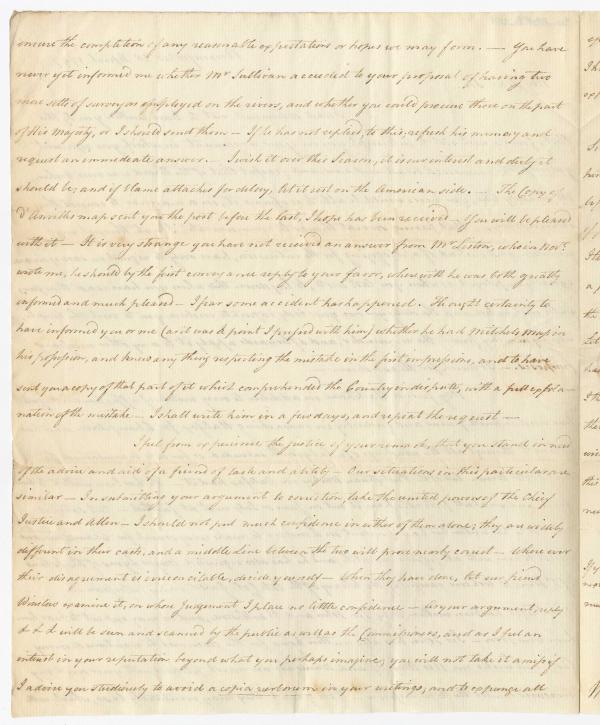 ensure the completion of any reasonable expectations or hopes we may form. — You have
never yet informed me whether Mr Sullivan acceeded to your proposal of having two
more setts of surveyors employed on the rivers, and whether you could procure those on the part
of His Majesty, or I should send them — If he has not replied, to this, refresh his memory and
request an immediate answer. — I wish it over this Season, it is our interest and duty it
should be, and if blame attaches for delay, let it rest on the American side. — The Copy of
D'Anvilles map sent you the post before the last, I hope has been received — You will be pleased
with it — It is very strange you have not received an answer from Mr Liston, who in Novr.
wrote me, he should by the first conveyance reply to your favor, wherewith he was both greatly
informed and much pleased — I fear some accident has happened. He ought certainly to
have informed you or me (as it was a point I pressed with him) whether he had Mitchels Map in
his possession, and knew any thing respecting the mistake in the first impressions, and to have
sent you a copy of that part of it which comprehended the Country in dispute, with a full expla-
nation of the mistake — I shall write him in a few days, and repeat the request —
I feel from experience the justice of your remark, that you stand in need
of the advice and aid of a friend of taste and ability — Our situations in this particular are
similar — In submitting your argument to correction, take the united powers of the Chief
Justice and Allen — I should not put much confidence in either of them alone; they are widely
different in their casts, and a middle line between the two will prove nearly correct — Where ever
their disagreement is irreconcilable, decide yourself — When they have done, let our friend
Winslow examine it, on whose Judgement I place no little confidence — As your argument, reply
& & & will be seen and scanned by the public as well as the Commissioners, and as I feel an
interest in your reputation beyond what you perhaps imagine, you will not take it amiss if
I advise you studiously to avoid a copia verborum in your writings, and to expunge all